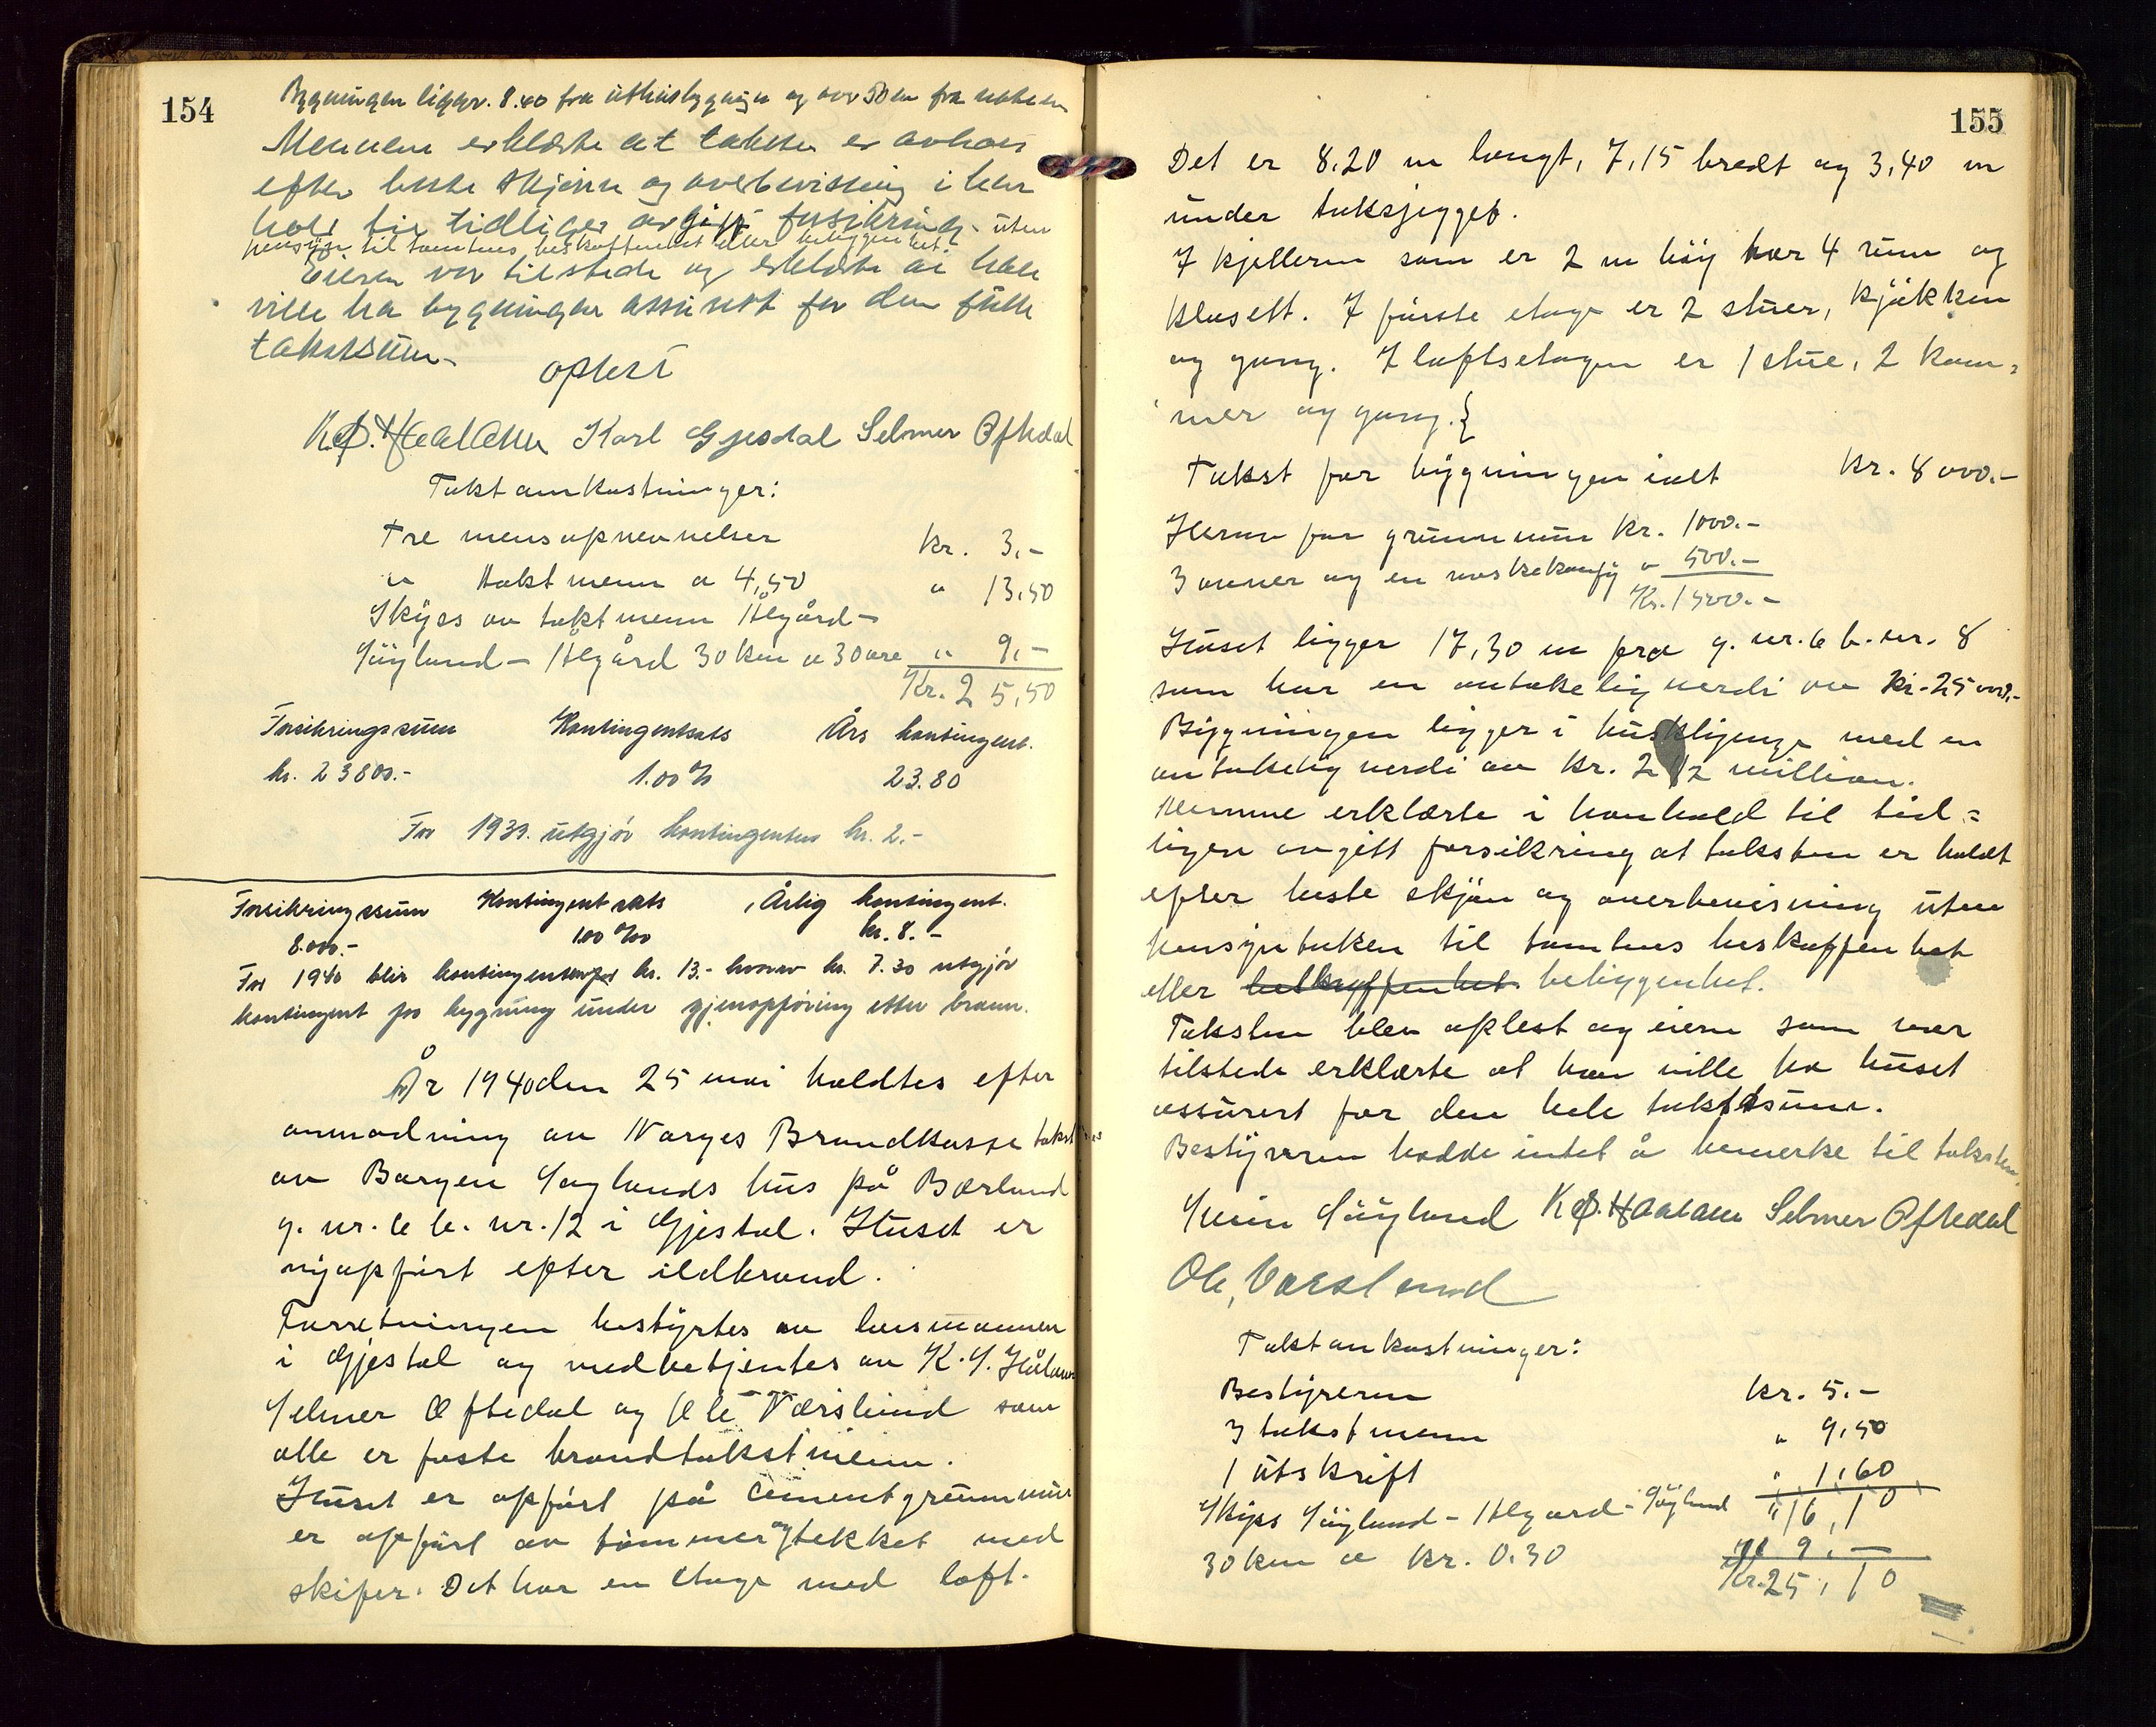 154
Bygningen ligger 8.40 fra uthusbygnign og over 50 m fra
Mennene erklærte at taksten er avholt
efter beste skjønn og overbevissing i hen
hold til tidliger avgitt forsikring - uten
hensyn til tomtens beskaffenhet eller beliggenhet
Eieren var tilstede og erklærte at han
ville ha bygningen assurert for den fulle
takstsum -
oplest
K.S. Haaland Karl Gjesdal Selmer Oftedal
Takstomkostninger:
Tre mensopnevnelser kr. 3,-
" takstmenn a 4,50 " 13,50
Skyss av takstmenn Ålgård -
Söyland - Ålgård 30 km a 30 øre " 9,-
Kr. 25,50
Forsikringssum Kontingentsats Års kontingent.
kr. 23800.- 1.00 ‰ 23.80
For 1939. utgjör kontingenten kr. 2.-
Forsikringssum Kontingent sats Årlig kontingent.
8.000.- 1.00 ‰ kr. 8.-
For 1940 blir kontingenten kr. 13.- hvorav kr. 7.30 utgjör
kontingent for bygning under gjenopföring etter brann.
År 1940 den 25 mai holdtes efter
anmodning av Norges Brandkasse takst
av Børgen Søylands hus på Bærland
g. nr. 6 b. nr. 12 i Gjestal. Huset er
nyopfört efter ildbrand.
Forretningen bestyrtes av lensmannen
i Gjestal og medbetjentes av K. S. Håland
Selmer Oftedal og Ole Værsland som
alle er faste brandtakstmenn.
Huset er opfört på cementgrunnmur
er opfört av tömmer og tekket med
skifer. Det har en etage med loft.
155
Det er 8,20 m langt, 7,15 bredt og 3,40 m
under takskjegget.
I kjelleren som er 2 m höy har 4 rum og
klosett. I förste etage er 2 stuer, kjökken
og gang. I loftsetagen er 1 stue, 2 kam=
mer og gang.
Takst for bygningen ialt kr. 8000.-
Herav for grunnmur kr. 1000.-
3 ovner og en vaskekomfy " 500.-
Kr. 1500.-
Huset ligger 17,30 m fra g. nr. 6 b. nr. 8
som har en antakelig verdi av kr. 25000.-
Bygningen ligger i husklynge med en
antakelig verdi av kr. 2 1/2 million.
Menne erklærte i henhold til tid=
ligen avgitt forsikring at taksten er holdt
efter beste skjön og overbevisning uten
hensyntaken til tomtens beskaffenhet
eller beskaffenhet beliggenhet.
Taksten blev oplest og eieren som var
tilstede erklærte at han ville ha huset
assurert for den hele takstsum.
Bestyreren hadde intet å bemerke til taksten
Svein Söyland K.S. Haaland Selmer Oftedal
Ole Værsland
Takstomkostninger:
Bestyreren kr. 5.-
3 takstmenn " 9,50
1 utskrift " 1,60
Skyss Söyland - Ålgård - Söyland " 16,10
30 km a kr. 0.30 " 9.-
Kr. 25,10